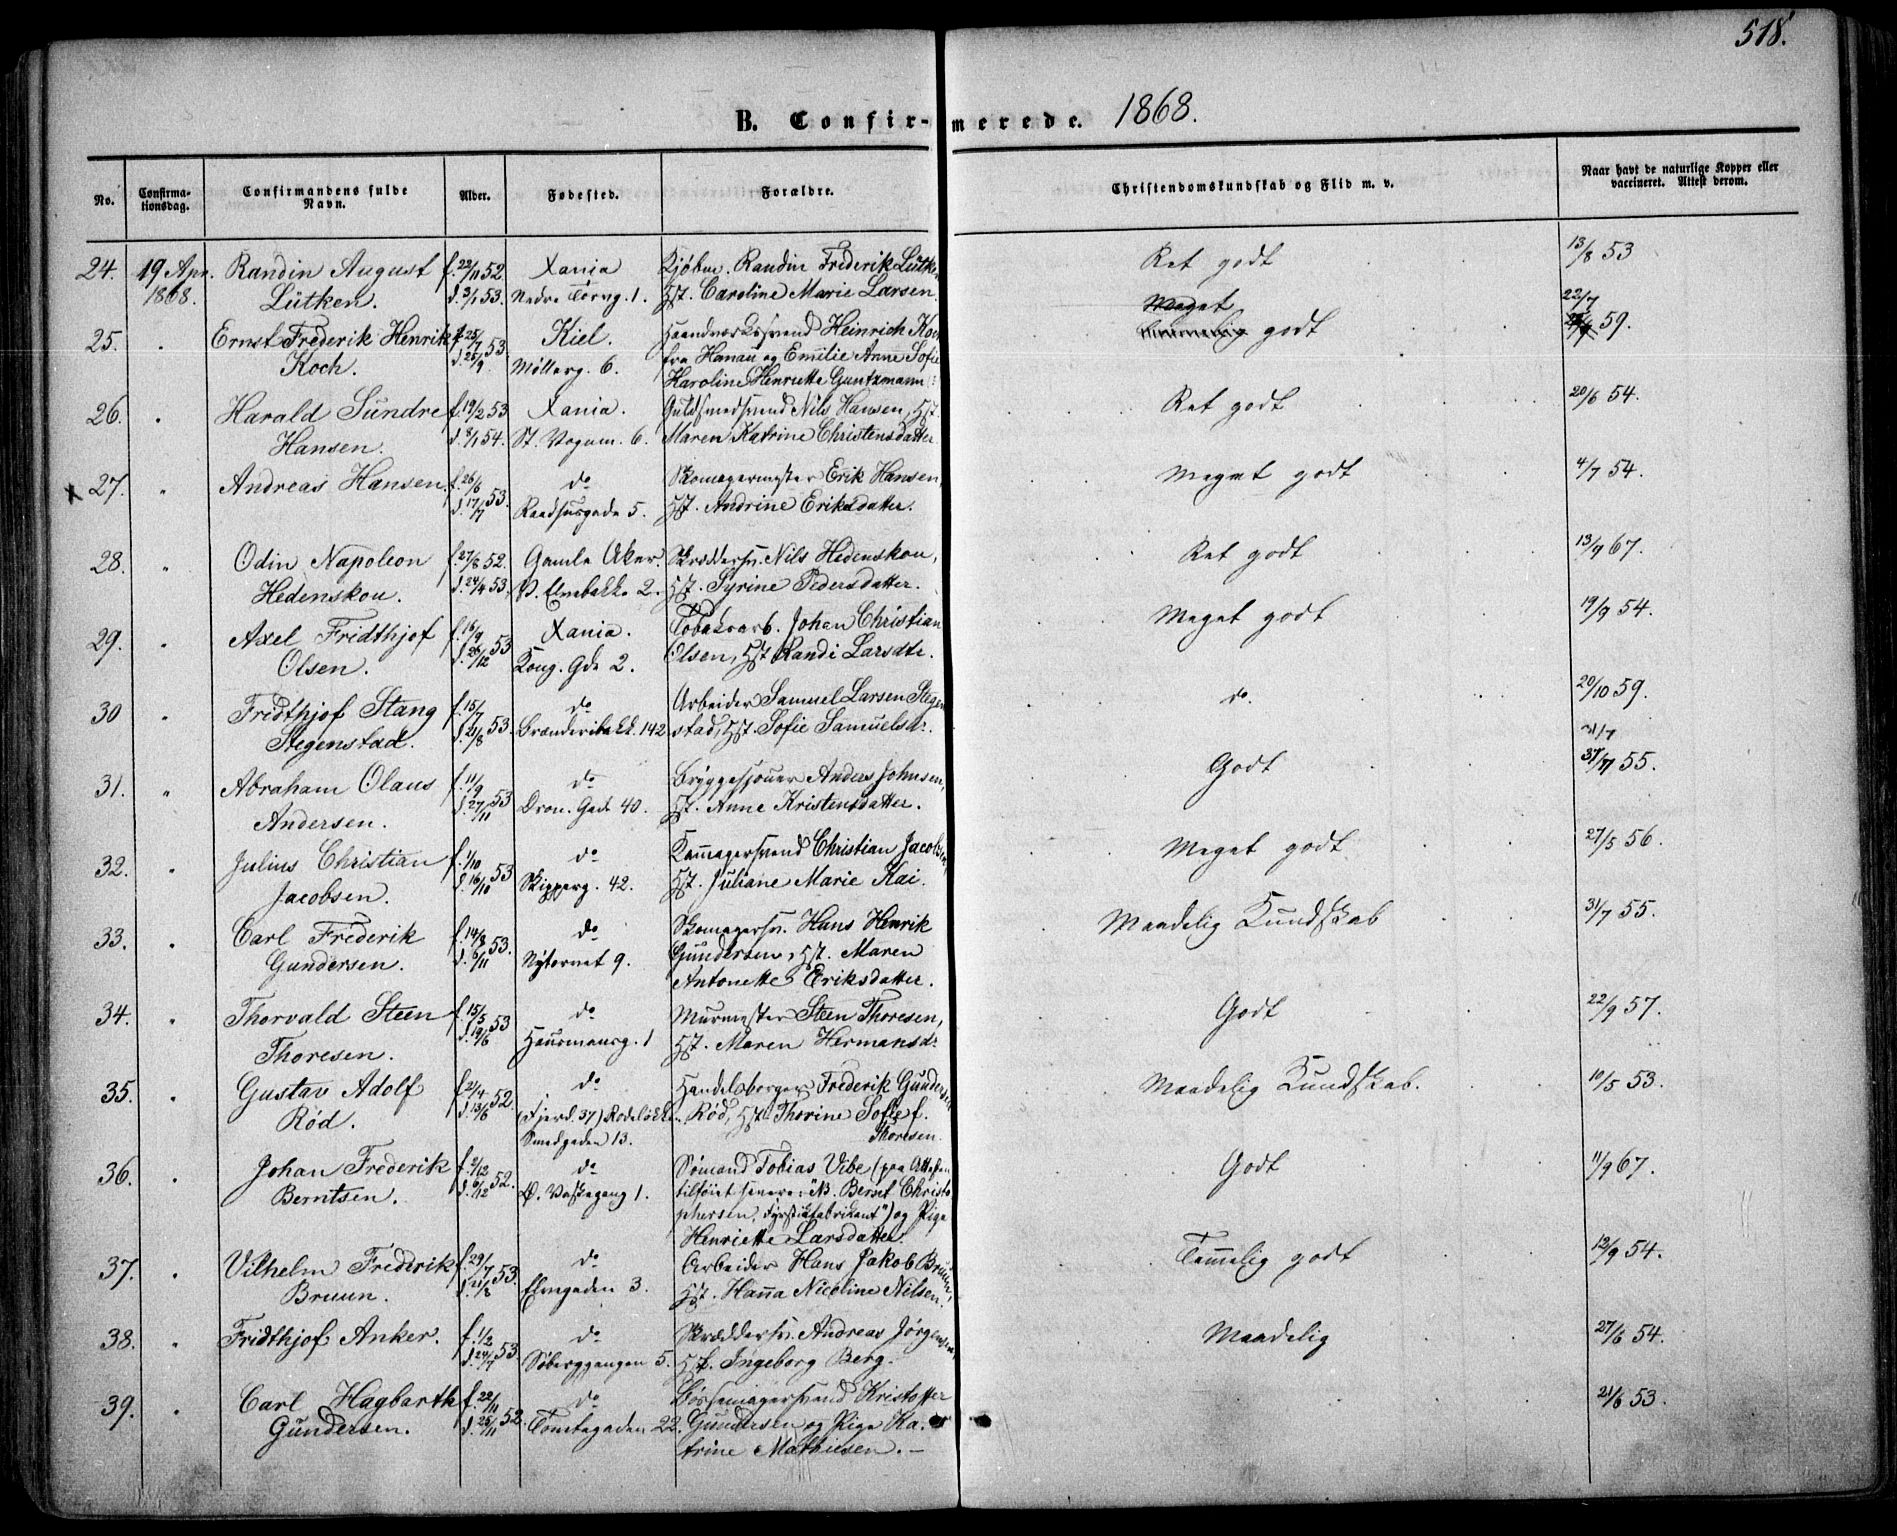 518.
B. Confir-merede. 1868.
No.
Confirma-
tionsdag.
Confirmandens fulde
Navn.
Alder.
Fødested.
Forældre.
Christendomskundskab og Flid m. v.
Naar havt de naturlige Kopper eller
vaccineret. Attest derom.
24. 19 Apr. Randin August f. 22/11 52. Xania Kjøbm. Randin Frederik Lütken Ret godt 13/8 53
1868. Lütken. d. 3/1 53. Nedre Torvg. 1. Hst. Caroline Marie Larsen.
25. " Ernst Frederik Henrik f. 25/7 53. Kiel. Haandværkssvend Heinrich Koch Meget godt 22/7 59.
Koch. d. 25/9 Møllerg. 6. fra Hanau og Emilie Anne Sofie
Karoline Henriette Guntzmann
26. " Harald Sundre f. 19/2 53 Xania. Guldsmedsvend Nils Hansen, Hst. Ret godt 20/6 54.
Hansen. d. 8/1 54. St. Vognm. 6. Maren Katrine Christensdatter
x 27. " Andreas Hansen. f. 26/6 53. do Skomagermester Erik Hansen, Meget godt 4/7 54.
d. 17/7 Raadhusgade 5. Hst. Andrine Eriksdatter.
28. " Odin Napoleon f. 27/8 52. Gamle Aker. Skræddersv. Nils Hedenskou, Ret godt 13/7 67.
Hedenskou. d. 24/4 53. V. Elvebakke 2. Hst. Syrine Pedersdatter.
29. " Axel Fridthjof f. 16/9 53 Xania. Tobaksarb. Johan Christian Meget godt 19/9 54.
Olsen. d. 26/12 Kong. Gde 2. Olsen, Hst Randi Larsdtr.
30 " Fridthjof Stang f. 15/7 53. do Arbeider Samuel Larsen Stegen do. 20/10 59.
Stegenstad. d. 21/8 Brænderibakk. 142 stad, Hst. Sofie Samuelsdr.
31. " Abraham Olaus f. 11/9 53 do Bryggesjouer Anders Johnsen, Godt 31/7 55.
Andersen. d. 27/11 Dron. Gade 40. Hst. Anne Kristensdatter.
32. " Julius Christian f. 1/10 53 do Kammagersvend Christian Jacobsen, Meget godt 27/5 56.
Jacobsen. d. 16/10 Skipperg. 42. Hst. Juliane Marie Kai.
33. " Carl Frederik f. 14/8 53. do Skomagersv. Hans Henrik Maadelig Kundskab 31/7 55.
Gundersen. d. 6/11 Nytorvet 9. Gundersen, Hst. Maren
Antonette Eriksdatter.
34. " Thorvald Steen f. 15/5 53 do Murmester Steen Thoresen, Godt 22/9 57.
Thoresen. d. 19/6 Hausmansg. 1 Hst. Maren Hermansdr
35. " Gustav Adolf f. 21/4 52. do Handelsborger Frederik Gundersen Maadelig Kundskab. 10/5 53.
Rød. d. 13/6 (Fjerd. 37) Rodeløkken. Rød, Hst. Thorine Sofie f.
Smedgaden 13. Thoresen.
36. " Johan Frederik f. 2/12 52. do Sømand Tobias Vibe (paa Attesten Godt 11/9 67.
Berntsen. d. 6/12 Ø. Vaskegang 1. tilføiet senere: "N. Bernt Christo
phersen, Fyrstikfabrikant") og Pige
Henriette Larsdatter.
37. " Vilhelm Frederik f. 29/7 53. do Arbeider Hans Jakob Bruun, Temmelig godt 12/9 54.
Bruun. d. 21/8 Elvegaden 3. Hst. Hanna Nicoline Nilsen.
38. " Fridthjof Anker. f. 1/2 53. do Skræddersv. Andreas Jørgensen, Maadelig 27/6 54.
d. 24/7 Søberggangen 5. Hst. Ingeborg Berg.
39. " Carl Hagbarth f. 22/11 52. do Børsemagersvend Kristoffer 21/6 53.
Gundersen. d. 25/11 Tomtegaden 22. Gundersen og Pige Ka-
trine Mathiesen. –